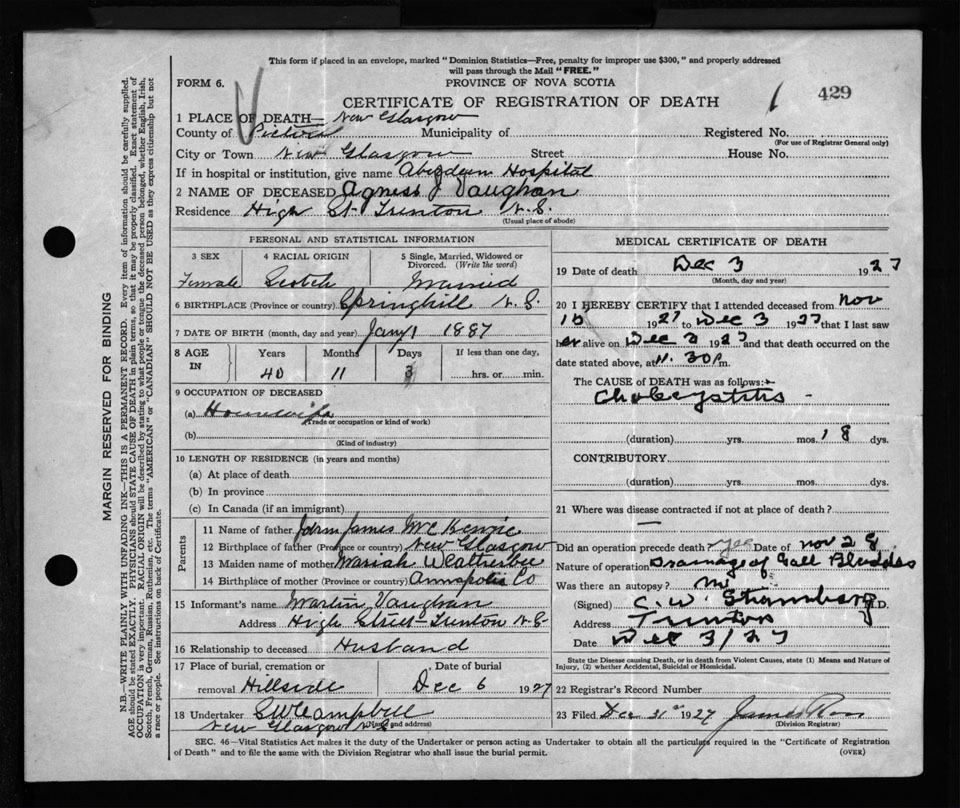 This form if placed in an envelope, marked "Dominion Statistics—Free, penalty for improper use $300," and properly addressed
will pass through the Mail "FREE."
FORM 6.
PROVINCE OF NOVA SCOTIA
CERTIFICATE OF REGISTRATION OF DEATH
1 429
1 PLACE OF DEATH— New Glasgow
County of Pictou Municipality of Registered No.
(For use of Registrar General only)
City or Town New Glasgow Street House No.
If in hospital or institution, give name Aberdeen Hospital
2 NAME OF DECEASED Agness J Vaughan
Residence High St. Trenton N.S.
(Usual place of abode)
PERSONAL AND STATISTICAL INFORMATION
3 SEX 4 RACIAL ORIGIN 5 Single, Married, Widowed or Divorced. (Write the word)
Female Scotch Married
6 BIRTHPLACE (Province or country) Springhill N.S.
7 DATE OF BIRTH (month, day and year) Jany 1 1887
8 AGE IN Years Months Days If less than one day,
40 11 3 hrs. or min.
9 OCCUPATION OF DECEASED
(a) Housewife
(Trade or occupation or kind of work)
(b)
(Kind of industry)
10 LENGTH OF RESIDENCE (in years and months)
(a) At place of death
(b) In province
(c) In Canada (if an immigrant)
Parents
11 Name of father John James McKenzie
12 Birthplace of father (Province or country) New Glasgow
13 Maiden name of mother Mariah Weatherbee
14 Birthplace of mother (Province or country) Annapolis Co
15 Informant's name Martin Vaughan
Address High Street Trenton N.S.
16 Relationship to deceased Husband
17 Place of burial, cremation or Date of burial
removal Hillside Dec 6 1927
18 Undertaker S W Campbell
New Glasgow N.S.
(Name and address)
MEDICAL CERTIFICATE OF DEATH
19 Date of death Dec 3 1927
(Month, day and year)
20 I HEREBY CERTIFY that I attended deceased from Nov
1927 to Dec 3 1927 that I last saw
her alive on Dec 1927 and that death occurred on the
date stated above, at 11.30 P.m.
The CAUSE of DEATH was as follows:
Cholecystitis -
(duration) yrs. mos. 18 dys.
CONTRIBUTORY
(duration) yrs. mos. dys.
21 Where was disease contracted if not at place of death?
—
Did an operation precede death? yes Date of Nov 28
Nature of operation Drainage of Gall Bladder
Was there an autopsy? no
(Signed) C. W. M.D.
Address Trenton
Date Dec 3/27
State the Disease causing Death, or in death from Violent Causes, state (1) Means and Nature of
Injury, (2) whether Accidental, Suicidal or Homicidal.
22 Registrar's Record Number
23 Filed Dec 31st 1927 James Ross
(Division Registrar)
SEC. 46—Vital Statistics Act makes it the duty of the Undertaker or person acting as Undertaker to obtain all the particulars required in the "Certificate of Registration
of Death" and to file the same with the Division Registrar who shall issue the burial permit. (OVER)
MARGIN RESERVED FOR BINDING
N.B.—WRITE PLAINLY WITH UNFADING INK—THIS IS A PERMANENT RECORD. Every item of information should be carefully supplied.
AGE should be stated EXACTLY. PHYSICIANS should STATE CAUSE OF DEATH in plain terms, so that it may be properly classified. Exact statement of
OCCUPATION is very important. RACIAL ORIGIN will be described by stating to what people or tongue the deceased person belonged, whether English, Irish,
Scotch, French, German, Russian, Ruthenian, etc. The terms "AMERICAN" or "CANADIAN" SHOULD NOT BE USED as they express citizenship but not
a race or people. See instructions on back of Certificate.